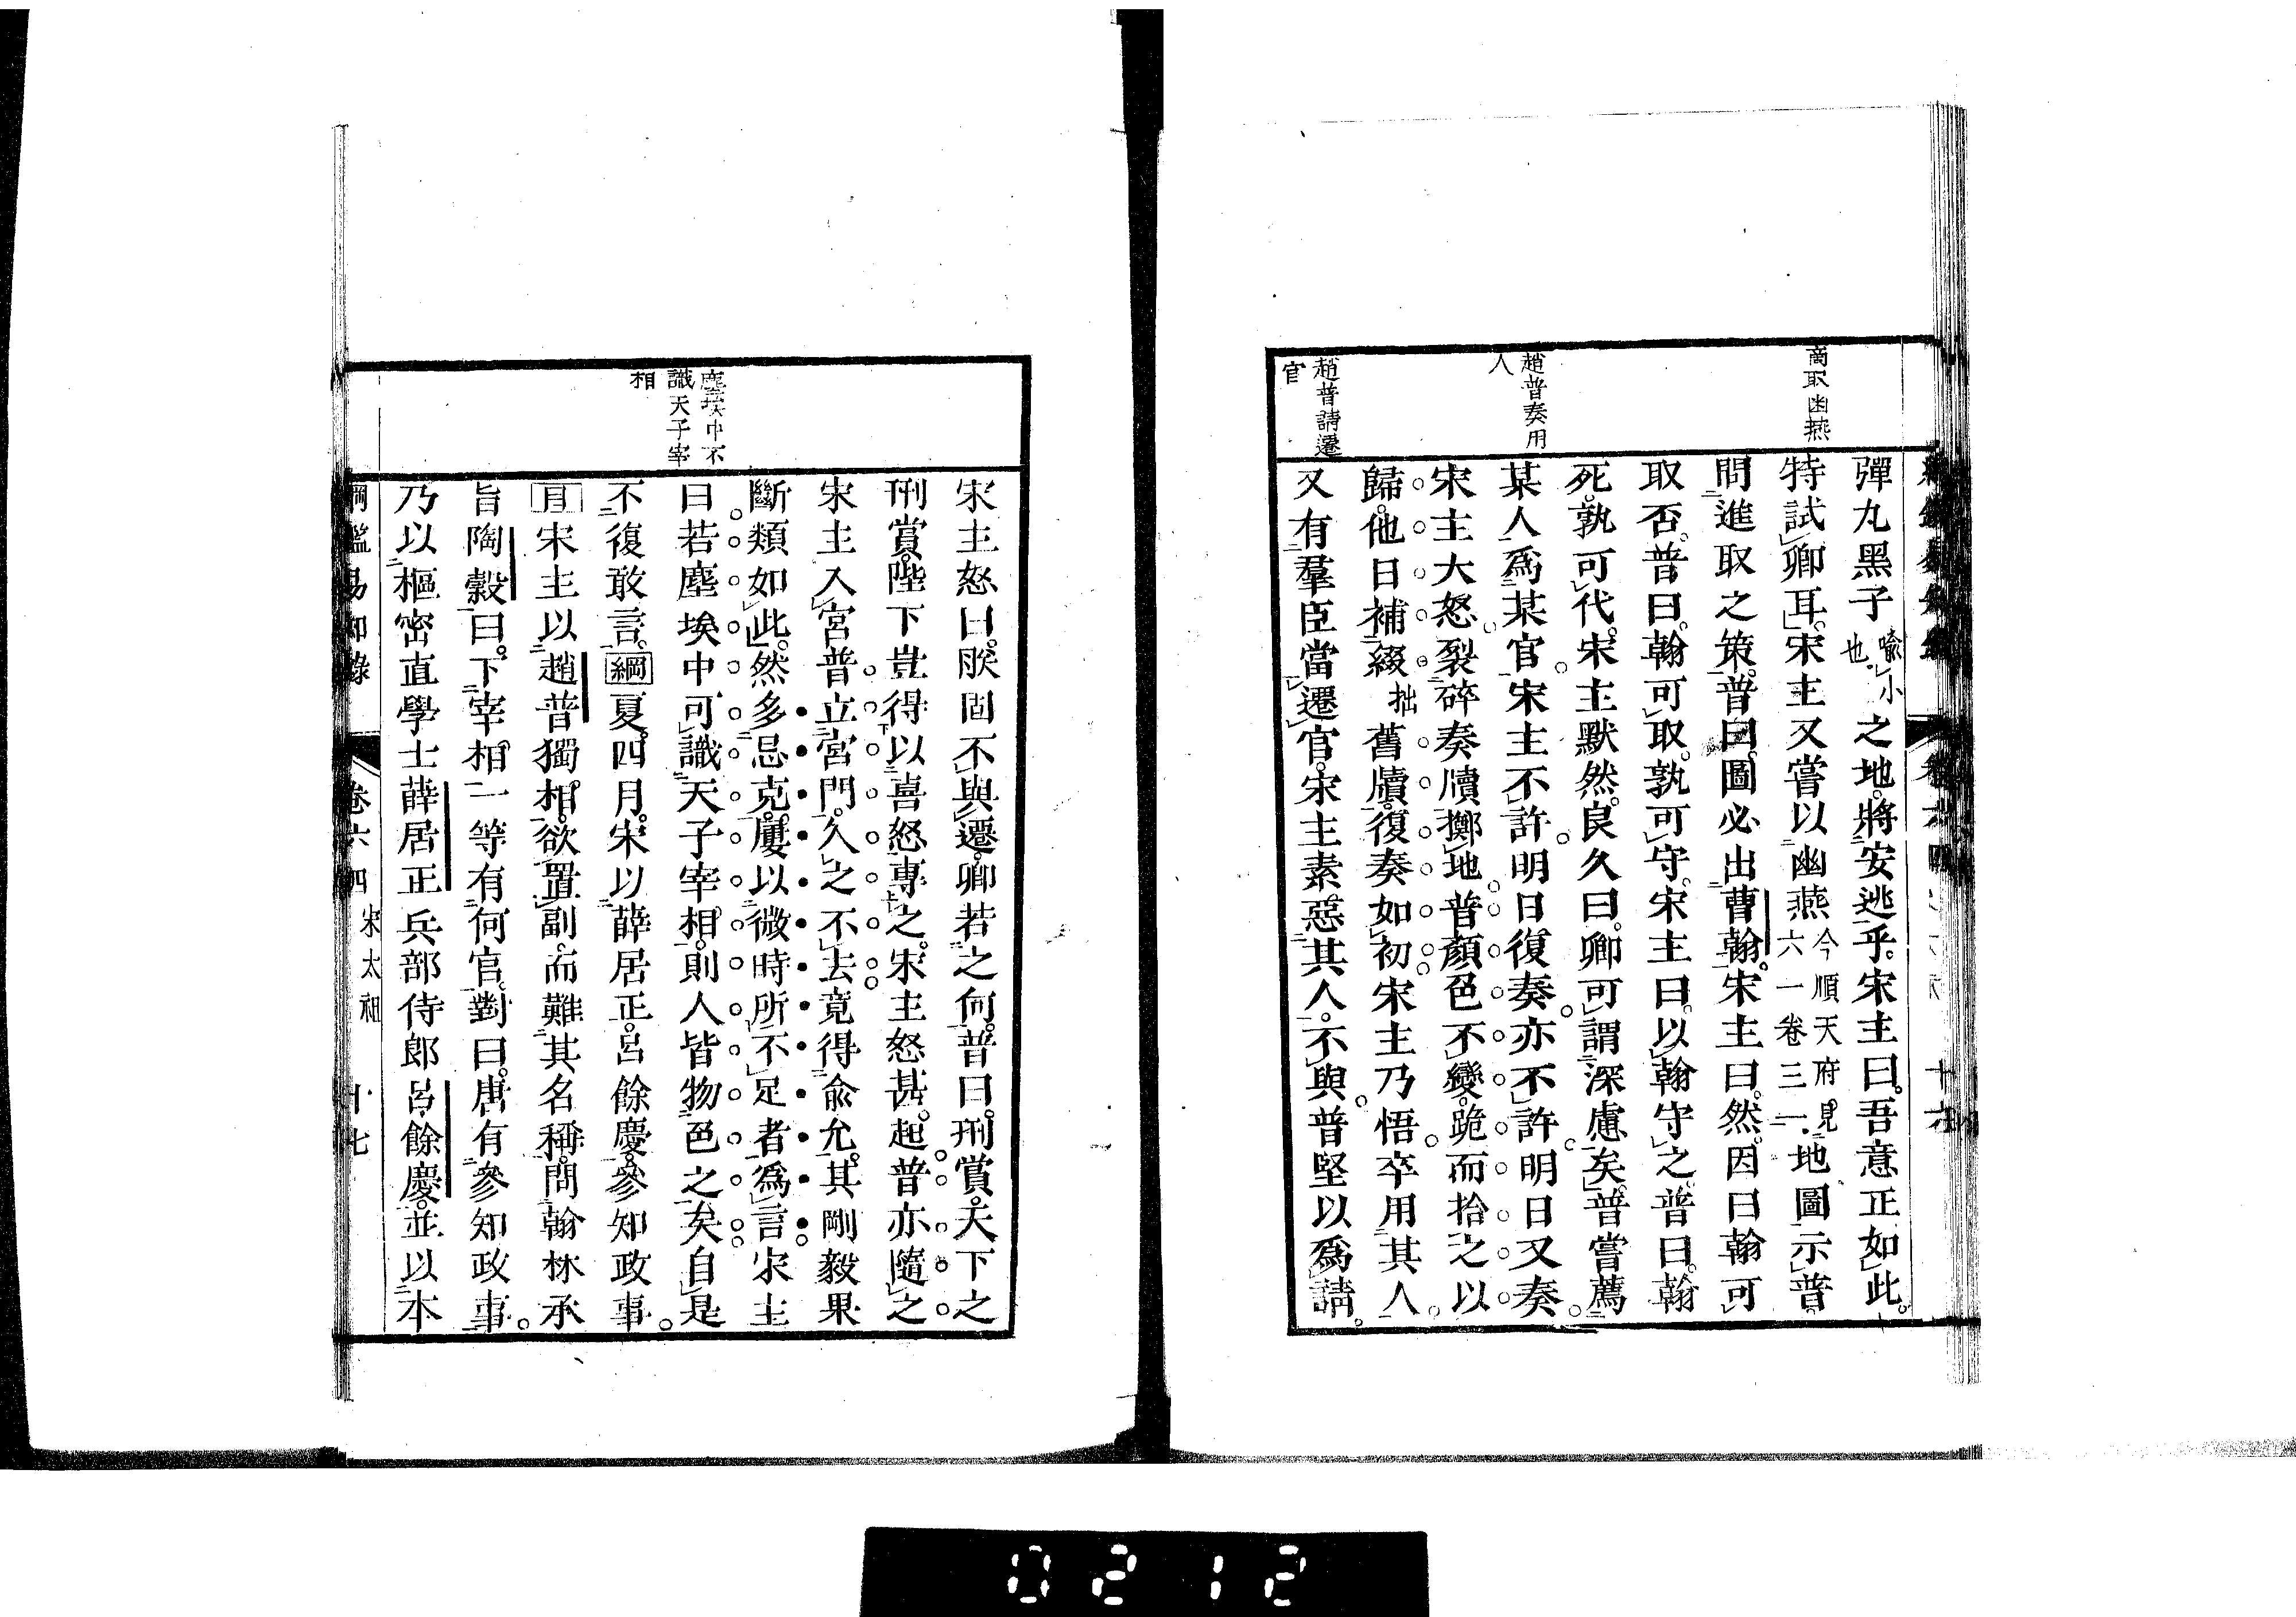 商取幽燕
趙普奏用
人
趙普請遷
官
彈丸黑子喻小也之地將安逃乎宋主曰吾意正如此
特試卿耳宋主又嘗以幽燕今順天府見六一卷三一地圖示普
問進取之策普曰圖必出曹翰宋主曰然因曰翰可
取否普曰翰可取孰可守宋主曰以翰守之普曰翰
死孰可代宋主默然良久曰卿可謂深慮矣普嘗薦
某人爲某官宋主不許明日復奏亦不許明日又奏
宋主大怒裂碎奏牘擲地普顏色不變跪而拾之以
歸他日補綴拙舊牘復奏如初宋主乃悟卒用其人
又有羣臣當遷官宋主素惡其人不與普堅以爲請
塵埃中不
識天子宰
相
宋主怒曰朕固不與遷卿若之何普曰刑賞天下之
刑賞陛下豈得以喜怒專之宋主怒甚起普亦隨之
宋主入宮普立宮門久之不去竟得兪允其剛毅果
斷類如此然多忌克屢以微時所不足者爲言宋主
曰若塵埃中可識天子宰相則人皆物色之矣自是
不復敢言綱夏四月宋以薛居正呂餘慶參知政事
目宋主以趙普獨相欲置副而難其名稱問翰林承
旨陶穀曰下宰相一等有何官對曰唐有參知政事
乃以樞密直學士薛居正兵部侍郎呂餘慶並以本
綱鑑易知錄 卷六四 宋太祖 十七
0212